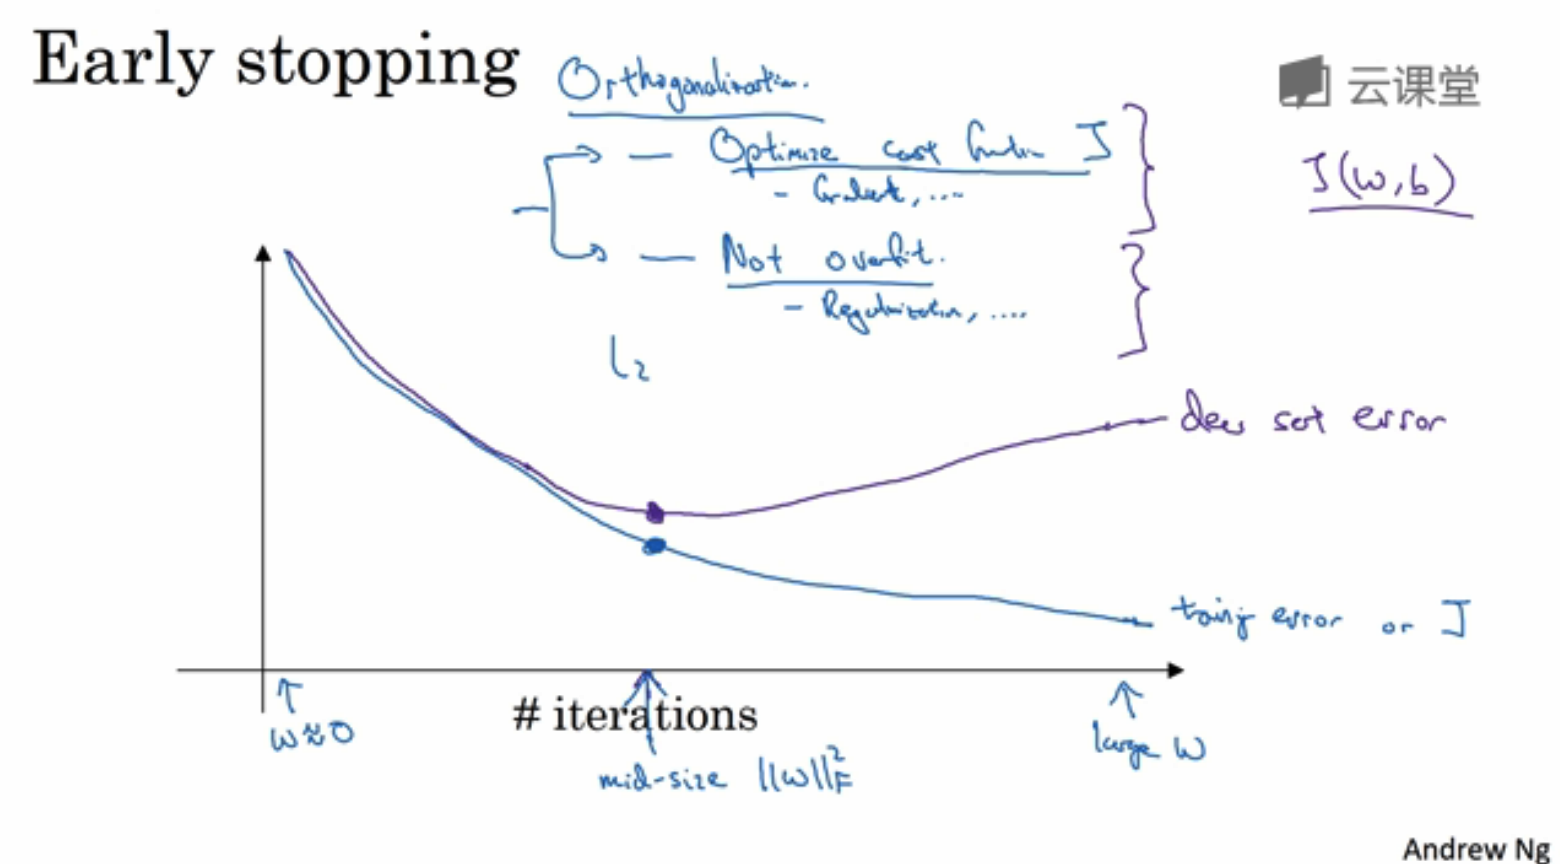 Early stopping
Orthogonalization.
云课堂
— Optimize cost function J
- Gradient, ....
J(w,b)
— Not overfit.
- Regularization, ....
L2
dev set error
training error or J
# iterations
w≈0
mid-size ||w||²_F
large w
Andrew Ng